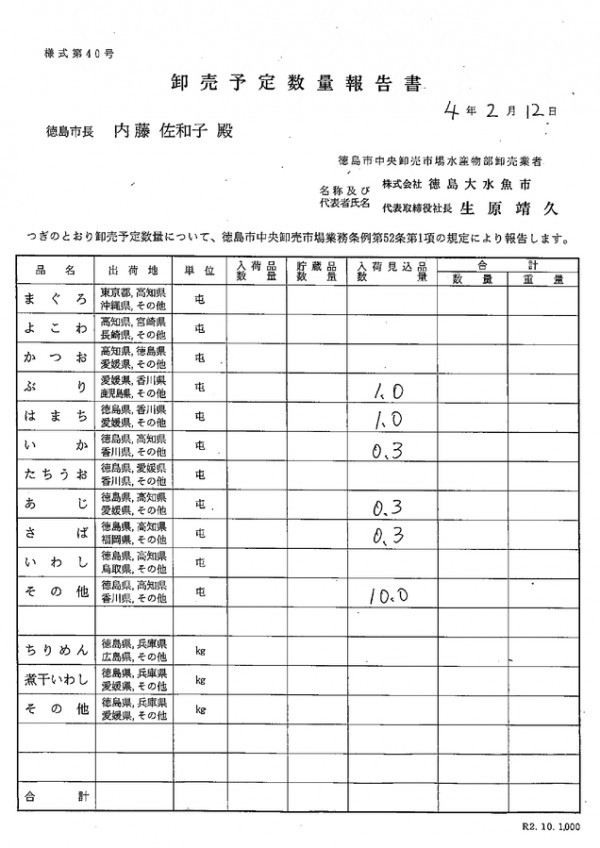 様式第40号
卸売予定数量報告書
4年2月12日
徳島市長 内藤 佐和子 殿
徳島市中央卸売市場水産物部卸売業者
名称及び 株式会社 徳島大水魚市
代表者氏名 代表取締役社長 生原靖久
つぎのとおり卸売予定数量について、徳島市中央卸売市場業務条例第52条第1項の規定により報告します。
品名 出荷地 単位 入荷品数量 貯蔵品数量 入荷見込品数量 合計
数量 重量
まぐろ 東京都, 高知県 屯
沖縄県, その他
よこわ 高知県, 宮崎県 屯
長崎県, その他
かつお 高知県, 徳島県 屯
愛媛県, その他
ぶり 愛媛県, 香川県 屯 1.0
鹿児島県, その他
はまち 徳島県, 香川県 屯 1.0
愛媛県, その他
いか 徳島県, 高知県 屯 0.3
香川県, その他
たちうお 徳島県, 愛媛県 屯
香川県, その他
あじ 徳島県, 高知県 屯 0.3
愛媛県, その他
さば 徳島県, 高知県 屯 0.3
福岡県, その他
いわし 徳島県, 高知県 屯
鳥取県, その他
その他 徳島県, 高知県 屯 10.0
香川県, その他
ちりめん 徳島県, 兵庫県 kg
広島県, その他
煮干いわし 徳島県, 兵庫県 kg
愛媛県, その他
その他 徳島県, 兵庫県 kg
愛媛県, その他
合計
R2. 10. 1,000